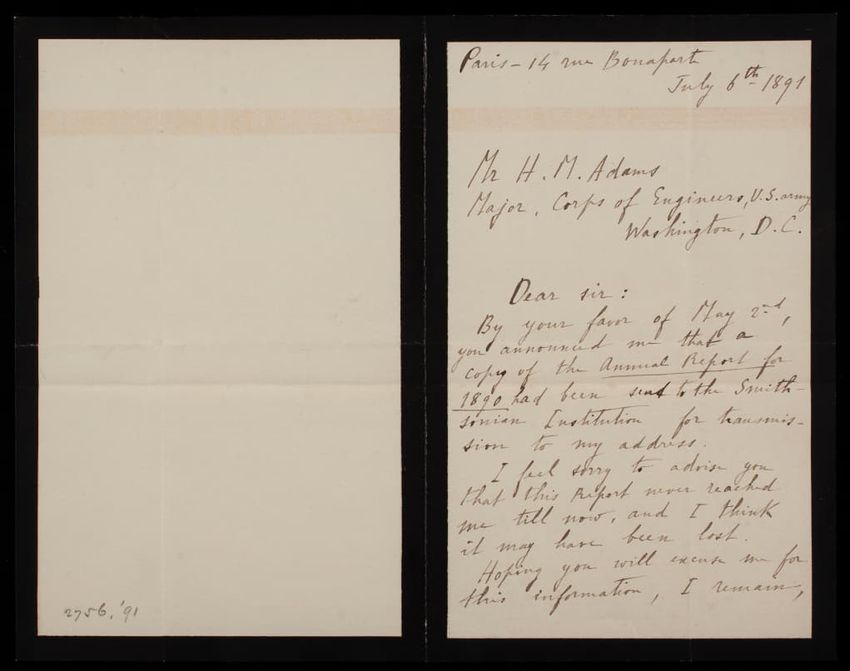 Paris - 14 rue Bonaparte
July 6th 1891
Mr H. M. Adams
Major, Corps of Engineers, U.S. army
Washington, D.C.
Dear sir:
By your favor of May 2nd,
you announced me that a
copy of the Annual Report for
1890 had been sent to the Smith-
sonian Institution for transmis-
sion to my address.
I feel sorry to advise you
that this Report never reached
me till now, and I think
it may have been lost.
Hoping you will excuse me for
this information, I remain,
2756, '91